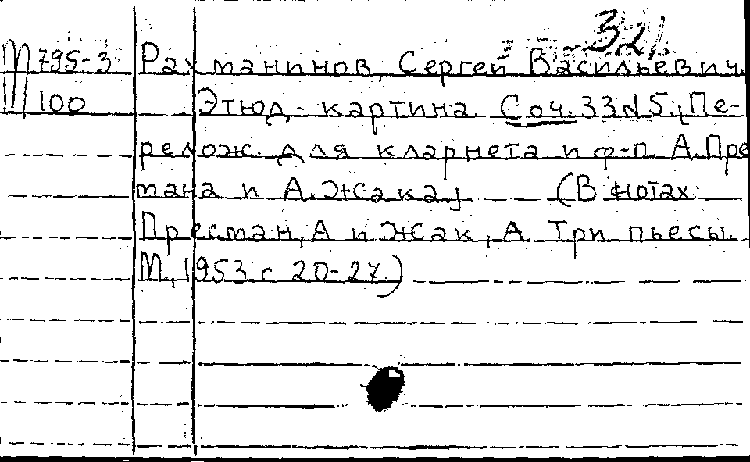 321
М 795-3 Рахманинов, Сергей Васильевич.
100 Этюд-картина. Соч. 33 №5. [Пе-
релож. для кларнета и ф-п. А. Прес
мана и А. Жака] (В нотах:
Пресман, А и Жак, А. Три пьесы.
М, 1953 с 20-27.)